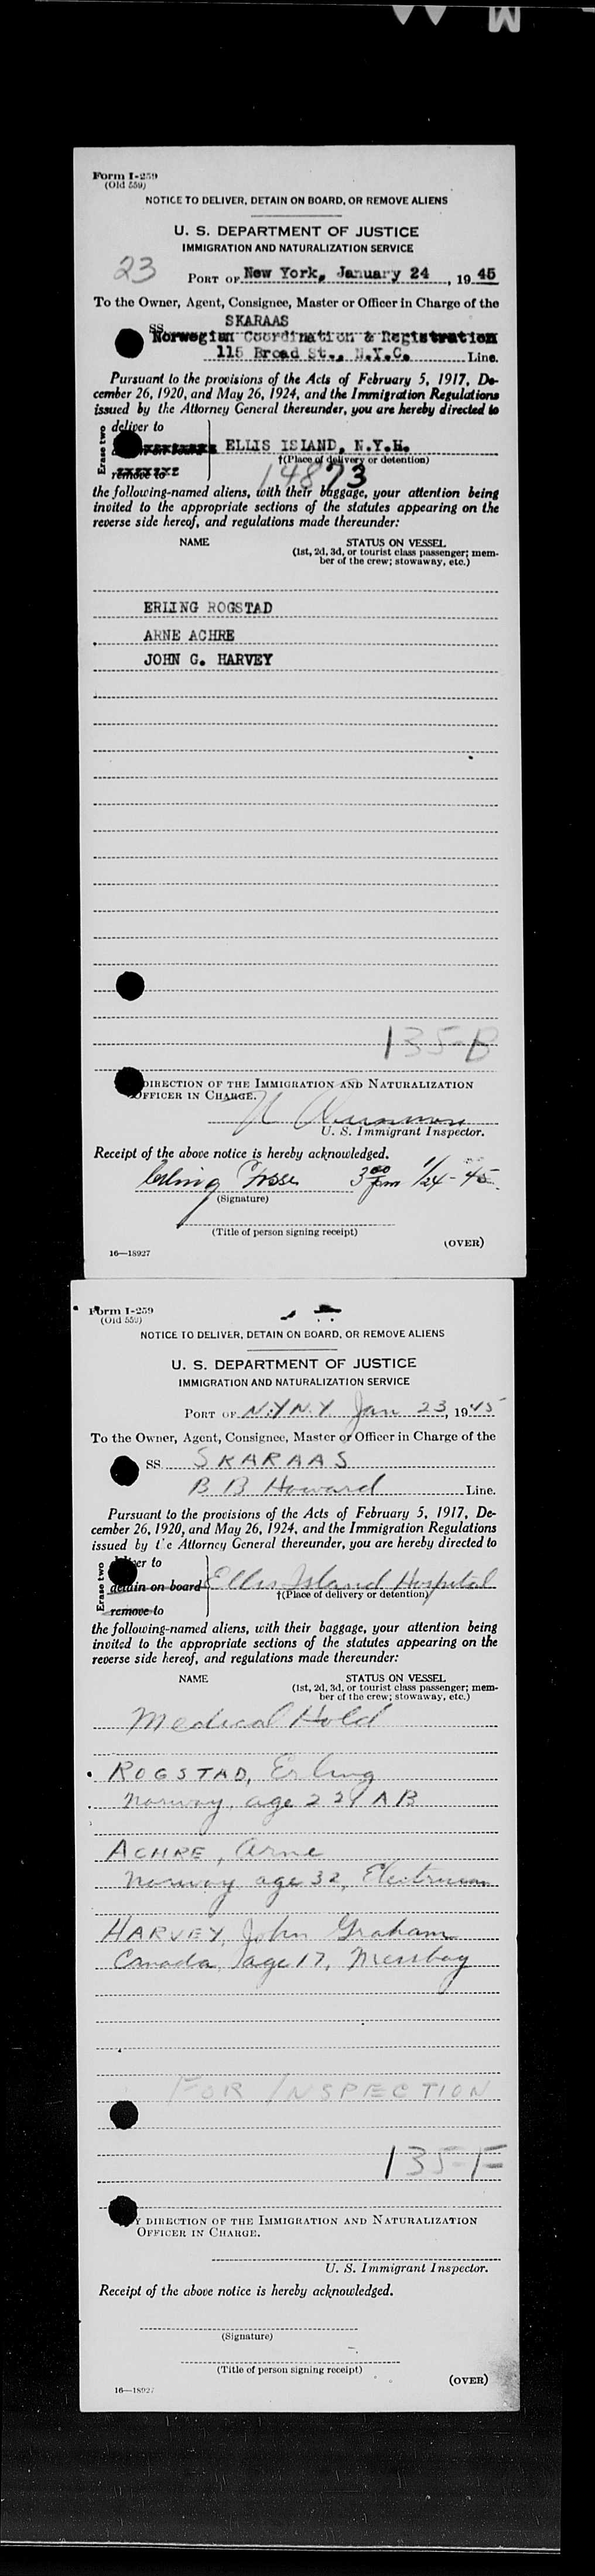 M
Form I-259
(Old 559)
NOTICE TO DELIVER, DETAIN ON BOARD, OR REMOVE ALIENS
U. S. DEPARTMENT OF JUSTICE
IMMIGRATION AND NATURALIZATION SERVICE
23
PORT OF New York, January 24, 1945
To the Owner, Agent, Consignee, Master or Officer in Charge of the
SKARAAS
SS. Norwegian Coordination & Registration
115 Broad St., N.Y.C. Line.
Pursuant to the provisions of the Acts of February 5, 1917, De-
cember 26, 1920, and May 26, 1924, and the Immigration Regulations
issued by the Attorney General thereunder, you are hereby directed to
Erase two
deliver to
ELLIS ISLAND, N.Y.H.
†(Place of delivery or detention)
remove to
14873
the following-named aliens, with their baggage, your attention being
invited to the appropriate sections of the statutes appearing on the
reverse side hereof, and regulations made thereunder:
NAME STATUS ON VESSEL
(1st, 2d, 3d, or tourist class passenger; mem-
ber of the crew; stowaway, etc.)
ERLING ROGSTAD
ARNE ACHRE
JOHN G. HARVEY
135-B
DIRECTION OF THE IMMIGRATION AND NATURALIZATION
OFFICER IN CHARGE.
U. S. Immigrant Inspector.
Receipt of the above notice is hereby acknowledged.
3 00 pm 1/24-45
(Signature)
(Title of person signing receipt)
16—18927 (OVER)
Form I-259
(Old 559)
NOTICE TO DELIVER, DETAIN ON BOARD, OR REMOVE ALIENS
U. S. DEPARTMENT OF JUSTICE
IMMIGRATION AND NATURALIZATION SERVICE
PORT OF N.Y.N.Y. Jan 23, 1945
To the Owner, Agent, Consignee, Master or Officer in Charge of the
SS. SKARAAS
B B Howard Line.
Pursuant to the provisions of the Acts of February 5, 1917, De-
cember 26, 1920, and May 26, 1924, and the Immigration Regulations
issued by the Attorney General thereunder, you are hereby directed to
Erase two
er to
detain on board Ellis Island Hospital
†(Place of delivery or detention)
remove to
the following-named aliens, with their baggage, your attention being
invited to the appropriate sections of the statutes appearing on the
reverse side hereof, and regulations made thereunder:
NAME STATUS ON VESSEL
(1st, 2d, 3d, or tourist class passenger; mem-
ber of the crew; stowaway, etc.)
Medical Hold
ROGSTAD, Erling
Norway, age 22 AB
ACHRE, Arne
Norway age 32, Electrician
HARVEY, John Graham
Canada, age 17, Messboy
FOR INSPECTION
135-F
Y DIRECTION OF THE IMMIGRATION AND NATURALIZATION
OFFICER IN CHARGE.
U. S. Immigrant Inspector.
Receipt of the above notice is hereby acknowledged.
(Signature)
(Title of person signing receipt)
16—18927 (OVER)